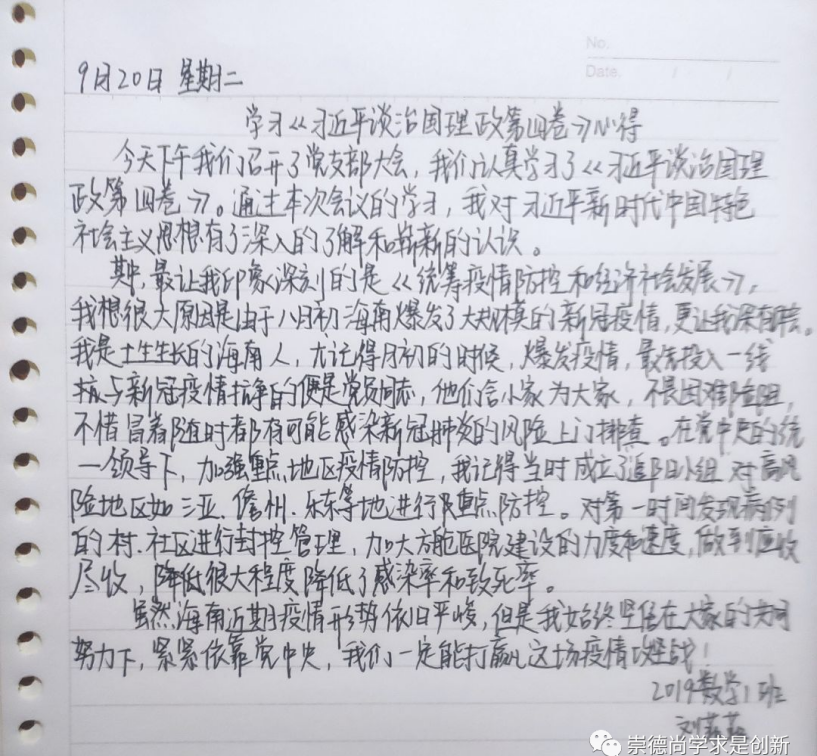 No.
Date.
9月20日 星期二
学习《习近平谈治国理政第四卷》心得
今天下午我们召开了党支部大会，我们认真学习了《习近平谈治国理
政第四卷》。通过本次会议的学习，我对习近平新时代中国特色
社会主义思想有了深入的了解和崭新的认识。
其中，最让我印象深刻的是《统筹疫情防控和经济社会发展》，
我想很大原因是由于八月初海南爆发了大规模的新冠疫情，更让我深有体会。
我是土生生长的海南人，尤记得月初的时候，爆发疫情，最先投入一线
抗与新冠疫情抗争的便是党员同志，他们舍小家为大家，不畏困难险阻，
不惜冒着随时都有可能感染新冠肺炎的风险上门排查。在党中央的统
一领导下，加强重点地区疫情防控，我记得当时成立了追阳小组 对高风
险地区如三亚、儋州、乐东等地进行重点防控。对第一时间发现病例
的村、社区进行封控管理，加大方舱医院建设的力度和速度，做到应收
尽收，降低很大程度降低了感染率和致死率。
虽然海南近期疫情形势依旧严峻，但是我始终坚信在大家的共同
努力下，紧紧依靠党中央，我们一定能打赢这场疫情攻坚战！
2019数学1班
崇德尚学求是创新